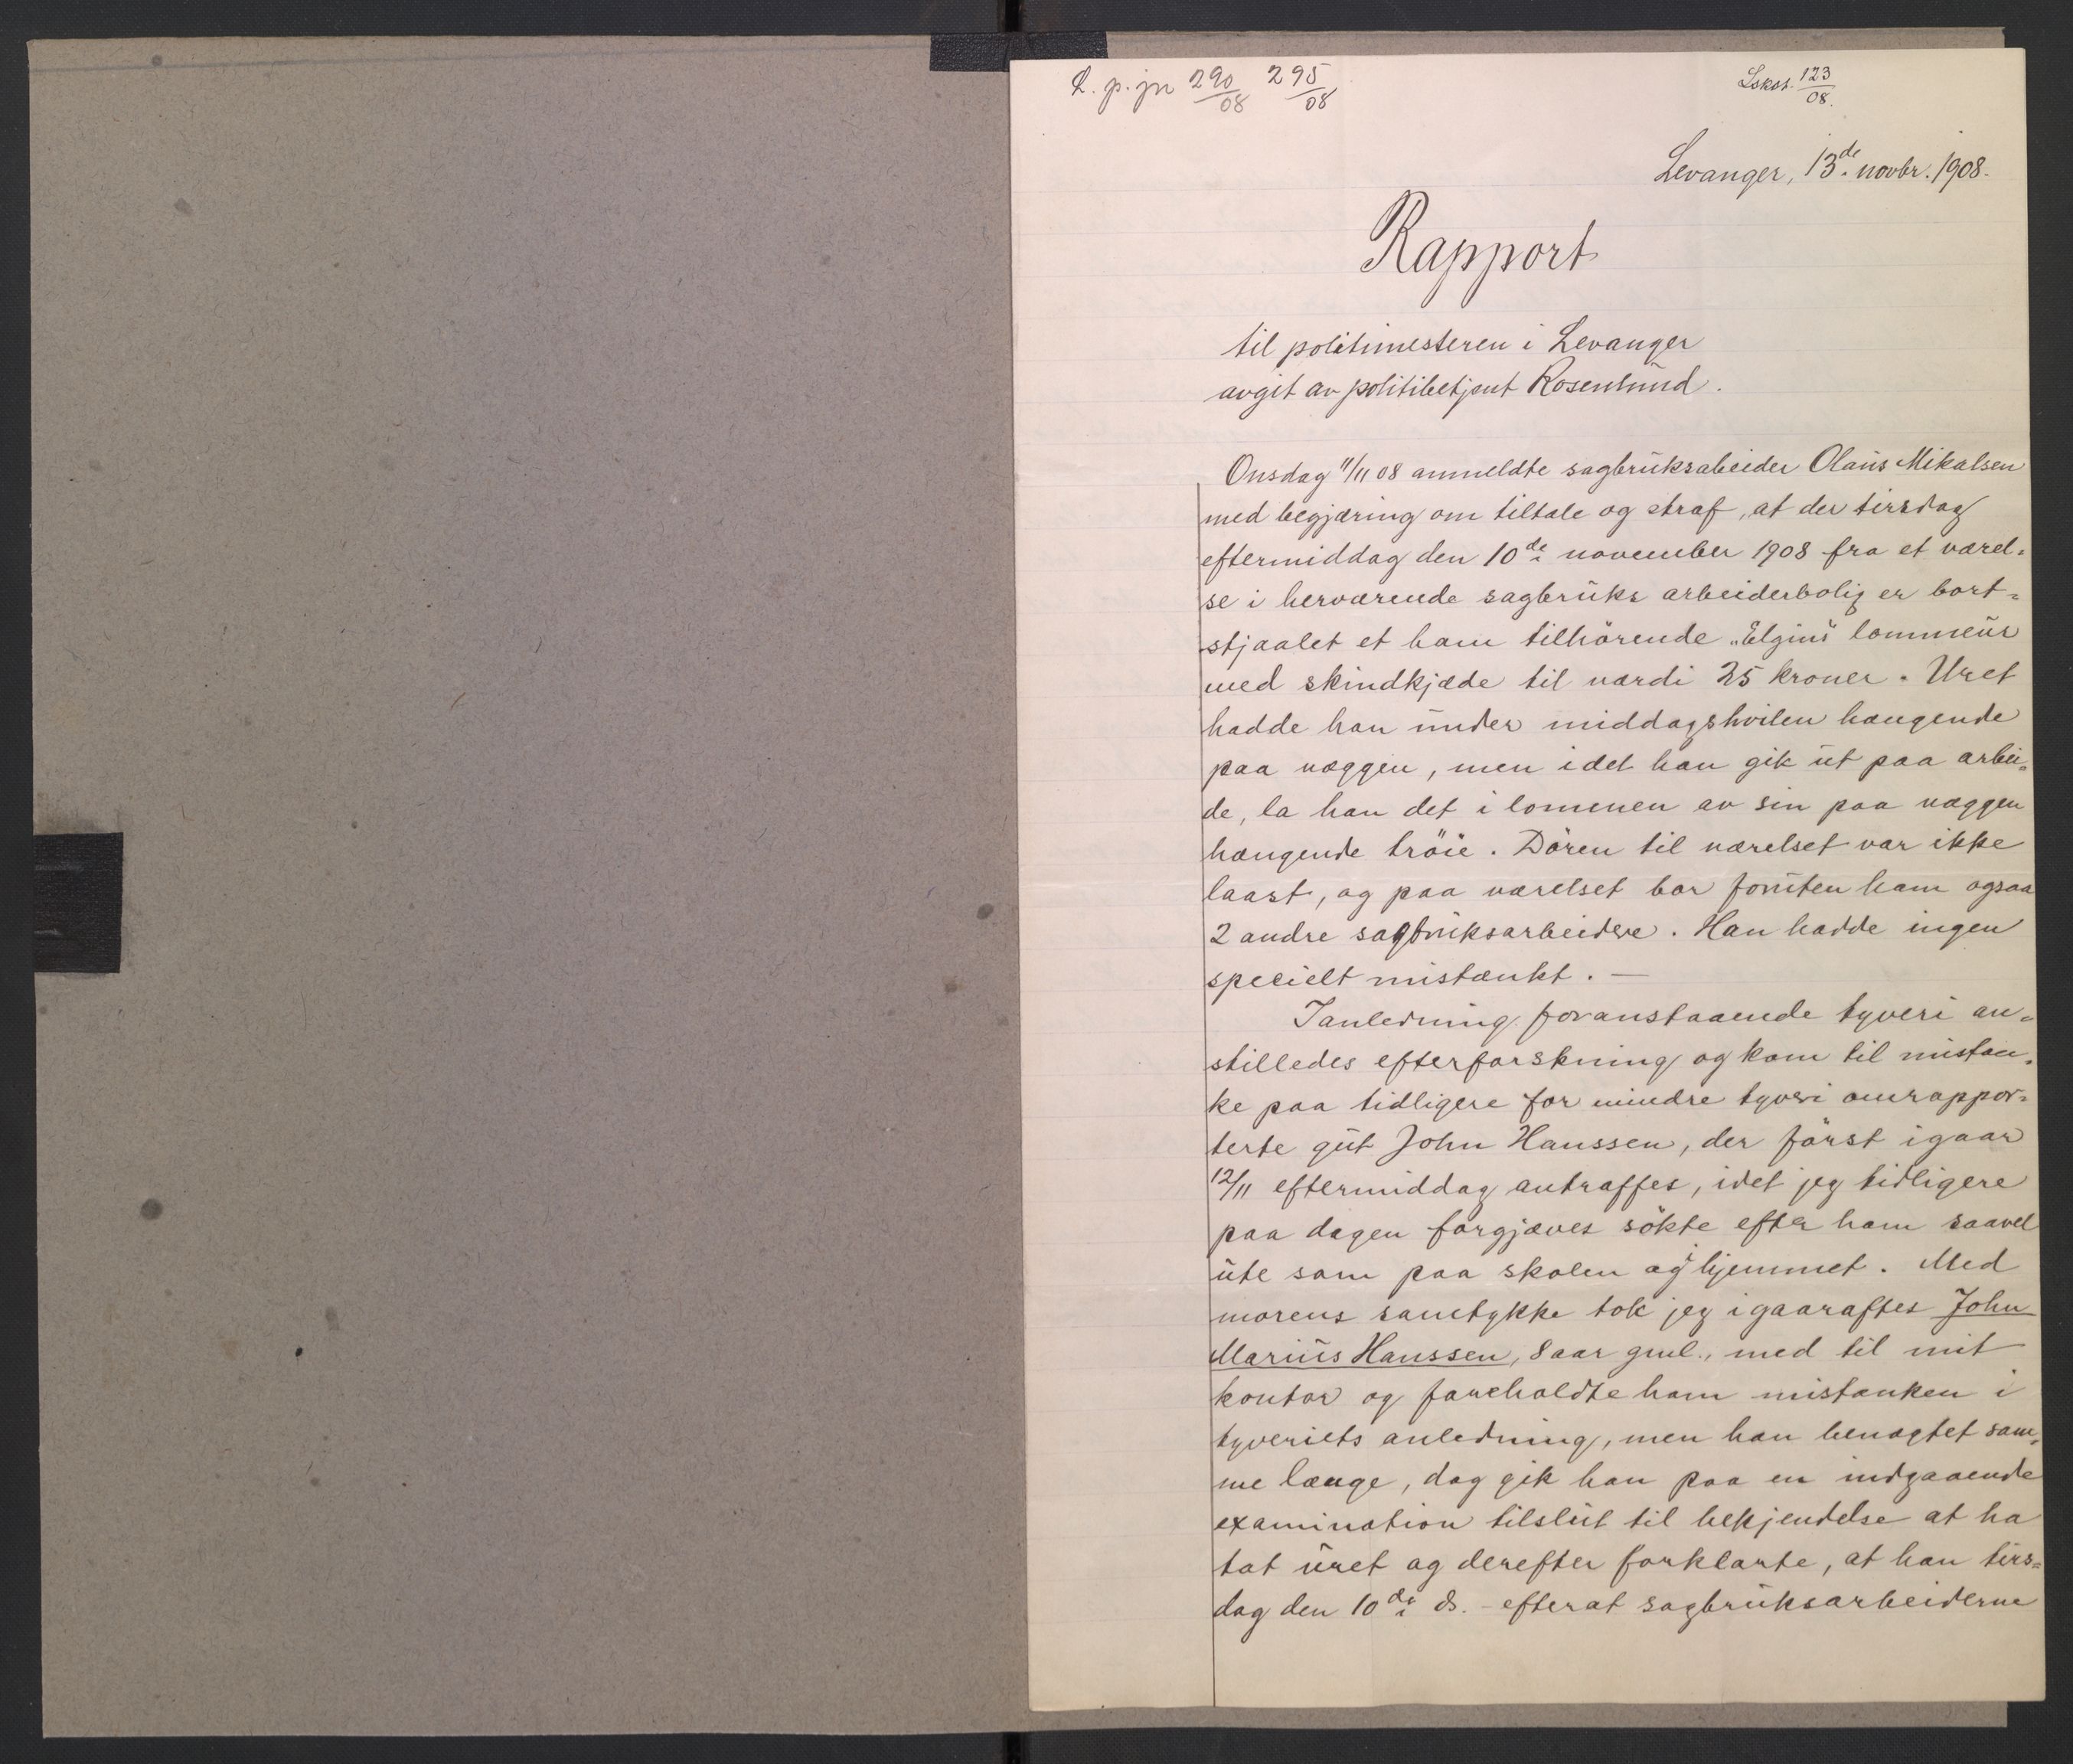 L. p. jn 290/08 295/08
Lskos. 123/08.
Levanger, 13de novbr. 1908.
Rapport
til politimesteren i Levanger
avgit av politibetjent Rosenlund.
Onsdag 11/11 08 anmeldte sagbruksabeider Olaus Mikalsen
med begjæring om tiltale og straf, at der tirsdag
eftermiddag den 10de november 1908 fra et værel=
se i herværende sagbruks arbeiderbolig er bort=
stjaalet et ham tilhörende „Elgin" lommeur
med skindkjæde til værdi 25 kroner. Uret
hadde han under middagshvilen hængende
paa væggen, men idet han gik ut paa arbei=
de, la han det i lommen av sin paa væggen
hængende tröie. Dören til værelset var ikke
laast, og paa værelset bor foruten ham ogsaa
2 andre sagbruksarbeidere. Han hadde ingen
specielt mistænkt. —
I anledning foranstaaende tyveri an=
stilledes efterforskning og kom til mistæn=
ke paa tidligere for mindre tyveri omrappor=
terte gut John Hanssen, der först igaar
12/11 eftermiddag antraffes, idet jeg tidligere
paa dagen forgjæves sökte efter ham saavel
ute som paa skolen og i hjemmet. Med
morens samtykke tok jeg igaaraftes John
Marius Hanssen, 8 aar gml., med til mit
kontor og foreholdte ham mistanken i
tyveriets anledning, men han benægtet sam=
me længe, dog gik han paa en indgaaende
examination tilslut til bekjendelse at ha
tat uret og derefter forklarte, at han tirs=
dag den 10de ds. - efterat sagbruksarbeiderne